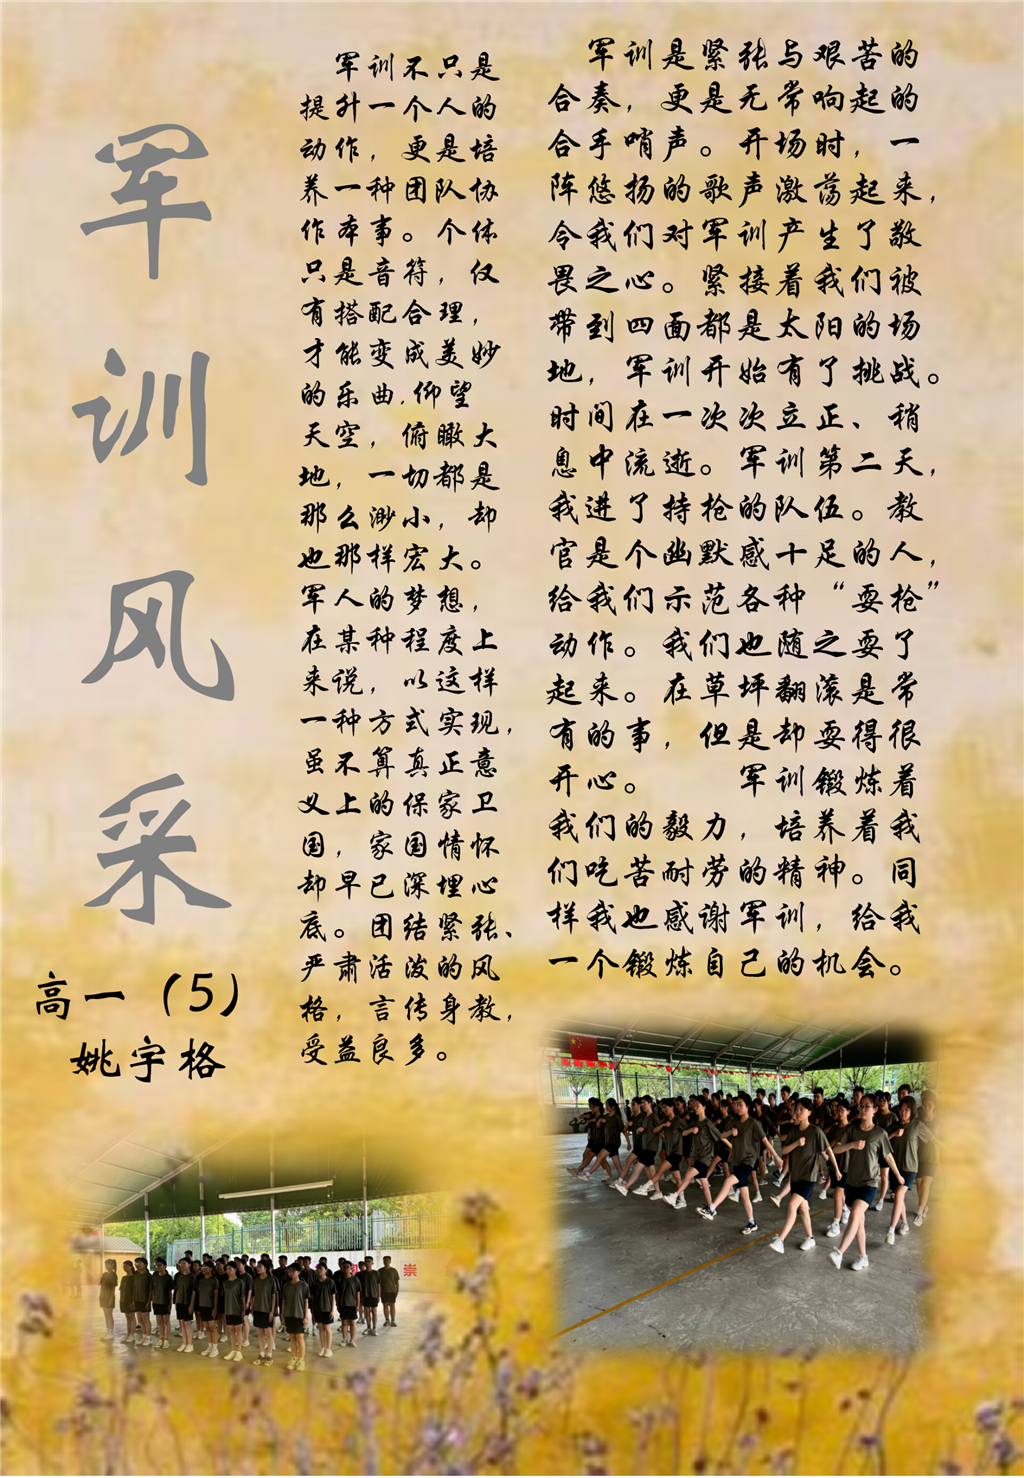 军训风采
高一（5）
姚宇格
军训不只是
提升一个人的
动作，更是培
养一种团队协
作本事。个体
只是音符，仅
有搭配合理，
才能变成美妙
的乐曲.仰望
天空，俯瞰大
地，一切都是
那么渺小，却
也那样宏大。
军人的梦想，
在某种程度上
来说，以这样
一种方式实现，
虽不算真正意
义上的保家卫
国，家国情怀
却早已深埋心
底。团结紧张、
严肃活泼的风
格，言传身教，
受益良多。
军训是紧张与艰苦的
合奏，更是无常响起的
合手哨声。开场时，一
阵悠扬的歌声激荡起来，
令我们对军训产生了敬
畏之心。紧接着我们被
带到四面都是太阳的场
地，军训开始有了挑战。
时间在一次次立正、稍
息中流逝。军训第二天，
我进了持枪的队伍。教
官是个幽默感十足的人，
给我们示范各种“耍枪”
动作。我们也随之耍了
起来。在草坪翻滚是常
有的事，但是却耍得很
开心。 军训锻炼着
我们的毅力，培养着我
们吃苦耐劳的精神。同
样我也感谢军训，给我
一个锻炼自己的机会。
崇